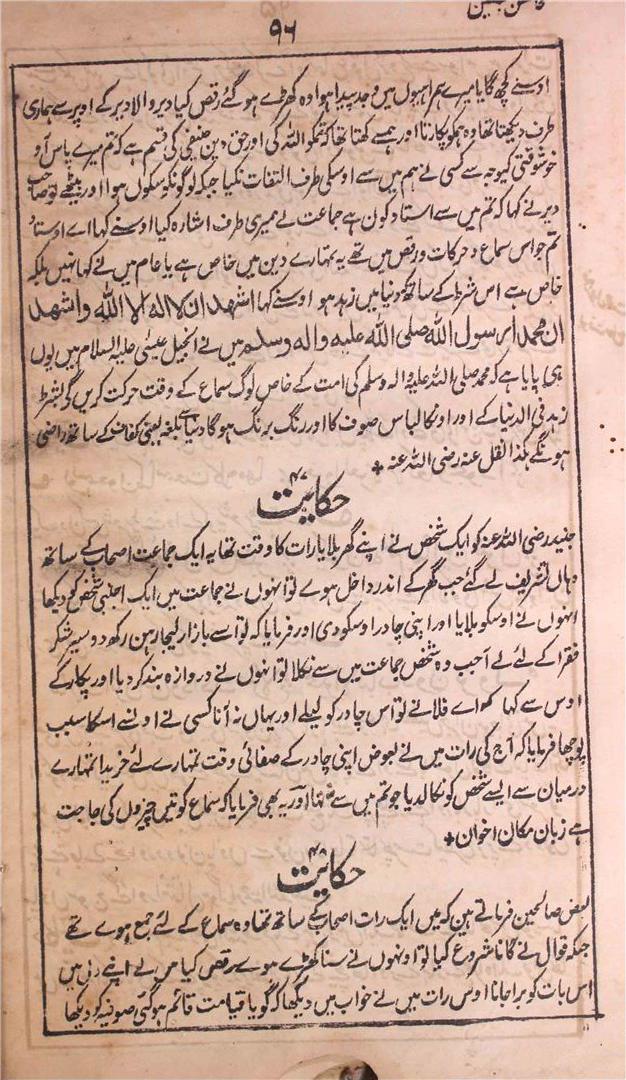 محاسن جبین
۹۶
اوسنے کچھ گایا میرے ہمراہیوں میں وجد پیدا ہوا وہ کھڑے ہوگئے رقص کیا دیر والا دیر کے اوپر سے ہماری
طرف دیکھتا تھا وہ ہمکو پکارتا اور ہمسے کہتا تھا کہ تمکو اللہ کی اور حق دین حنیفی کی قسم ہے کہ تم میرے پاس آو
خوشوقتی کیوجہ سے کسی نے ہم میں سے اوسکی طرف التفات نکیا جبکہ لوگونکو سکون ہوا اور بیٹھے تو صاحب
دیر نے کہا کہ تم میں سے استاد کون ہے جماعت نے میری طرف اشارہ کیا اوسنے کہا اے اوستاد
تم جو اس سماع و حرکات و رقص میں تھے یہ تمہارے دین میں خاص ہے یا عام میں نے کہا نہیں بلکہ
خاص ہے اس شرط کے ساتھ کہ دنیا میں زہد ہو اوسنے کہا اشہد ان لا الہ الا اللہ واشہد
ان محمدا رسول اللہ صلی اللہ علیہ والہ وسلم میں نے انجیل عیسیٰ علیہ السلام میں یوں
ہی پایا ہے کہ محمد صلی اللہ علیہ والہ وسلم کی امت کے خاص لوگ سماع کے وقت حرکت کریں گے بشرط
زہد فی الدنیا کے اور اونکا لباس صوف کا اور رنگ برنگ ہوگا دنیا سے بلغہ یعنی کفاف کے ساتھ راضی
ہونگے ہکذا نقل عنہ رضی اللہ عنہ +
حکایت ۴۷
جنید رضی اللہ عنہ کو ایک شخص نے اپنے گھر بلایا رات کا وقت تھا یہ ایک جماعت اصحاب کے ساتھ
وہاں تشریف لے گئے جب گھر کے اندر داخل ہوے تو انہوں نے جماعت میں ایک اجنبی شخص کو دیکھا
انہوں نے اوسکو بلایا اور اپنی چادر اوسکو دی اور فرمایا کہ تو اسے بازار لیجا رہن رکھ دو سیر شکر
فقرا کے لئے لے آ جب وہ شخص جماعت میں سے نکلا تو انہوں نے دروازہ بند کردیا اور پکار کے
اوس سے کہا کہ اے فلانے تو اس چادر کو لیلے اور یہاں نہ آنا کسی نے اونسے اسکا سبب
پوچھا فرمایا کہ آج کی رات میں نے بعوض اپنی چادر کے صفائی وقت تمہارے لئے خریدا تمہارے
درمیان سے ایسے شخص کو نکالدیا جو تم میں سے نہ تھا اور یہ بھی فرمایا کہ سماع کو تین چیزوں کی حاجت
ہے زبان مکان اخوان +
حکایت ۴۸
بعض صالحین فرماتے ہین کہ میں ایک رات اصحاب کے ساتھ تھا وہ سماع کے لئے جمع ہوے تھے
جبکہ قوال نے گانا شروع کیا تو اونہوں نے سنا کھڑے ہوے رقص کیا میں نے اپنے دل میں
اس بات کو برا جانا اوس رات میں نے خواب میں دیکھا کہ گویا قیامت قائم ہوگئی صوفیہ کو دیکھا